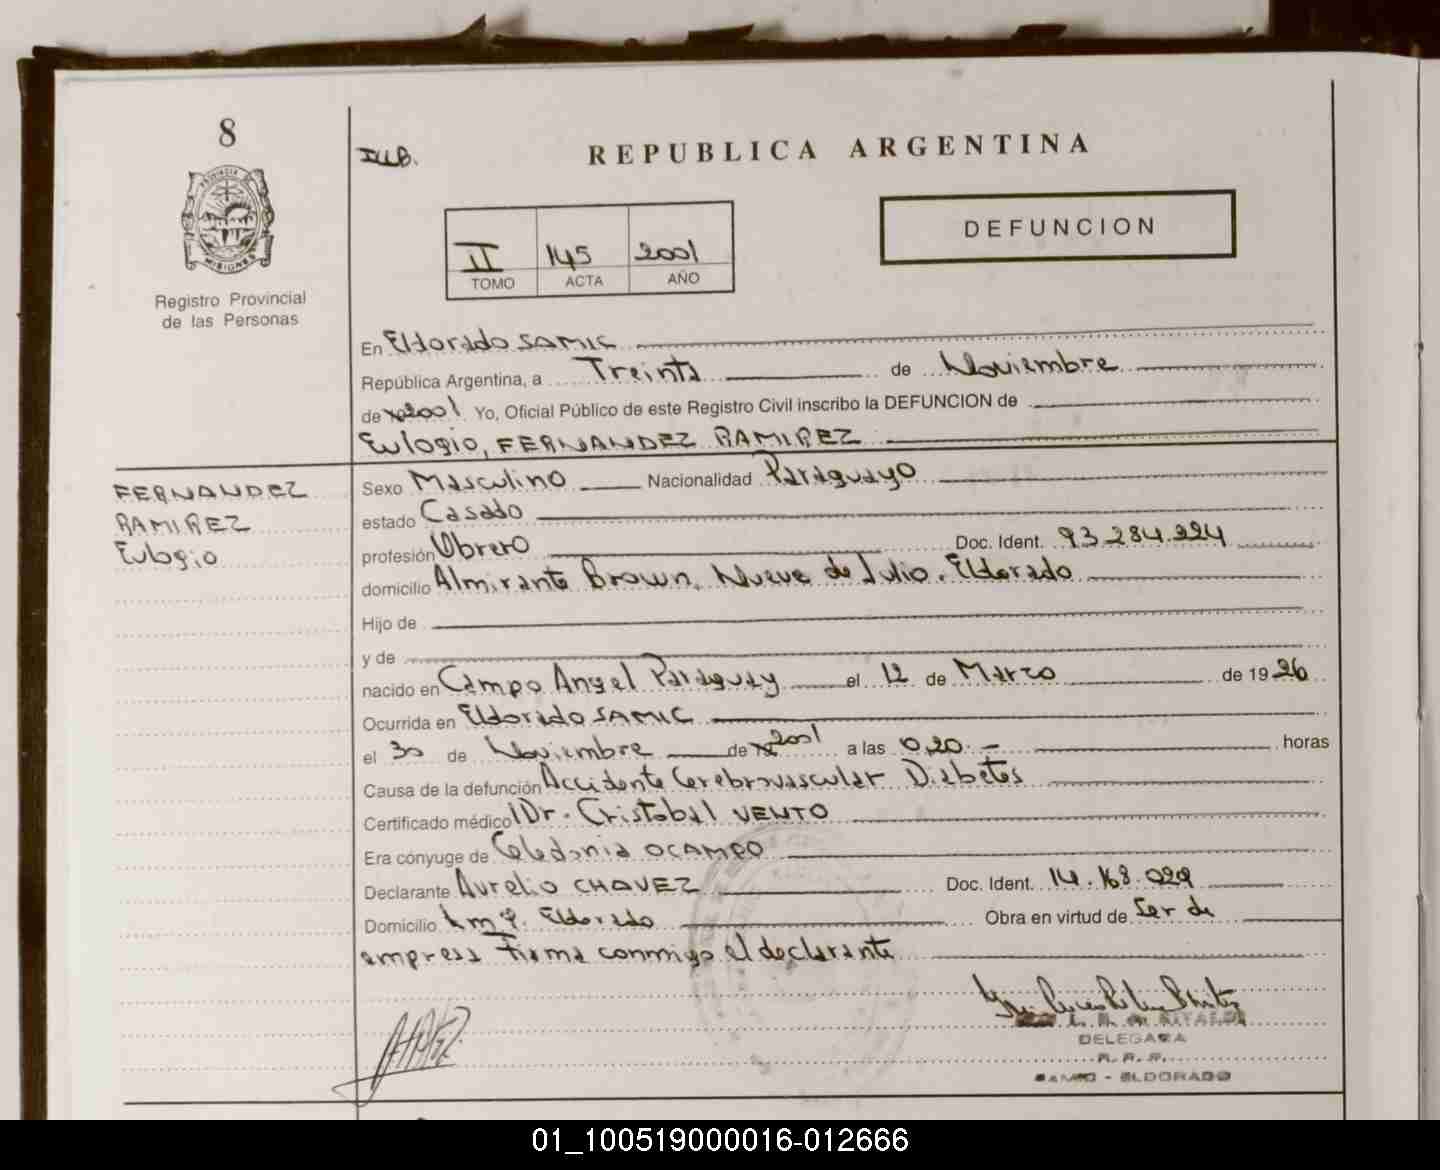 8
PROVINCIA DE
MISIONES
Registro Provincial
de las Personas
REPUBLICA ARGENTINA
II 145 2001
TOMO ACTA AÑO
DEFUNCION
En Eldorado SAMIC
República Argentina, a Treinta de Noviembre
de 2001 Yo, Oficial Público de este Registro Civil inscribo la DEFUNCION de
Eulogio, FERNANDEZ RAMIREZ
FERNANDEZ
RAMIREZ
Eulogio
Sexo Masculino Nacionalidad Paraguayo
estado Casado
profesión Obrero Doc. Ident. 93.284.224
domicilio Almirante Brown, Nueve de Julio. Eldorado
Hijo de
y de
nacido en Campo Angel Paraguay el 12 de Marzo de 1926
Ocurrida en Eldorado SAMIC
el 30 de Noviembre de 2001 a las 0,20 horas
Causa de la defunción Accidente Cerebrovascular Diabetes
Certificado médico Dr. Cristobal VENTO
Era cónyuge de Celedonia OCAMPO
Declarante Aurelio CHAVEZ Doc. Ident. 14.168.029
Domicilio km 9. Eldorado Obra en virtud de Ser de
empresa Firma conmigo el declarante
DELEGADA
R. P. P.
SAMIC - ELDORADO
01_100519000016-012666